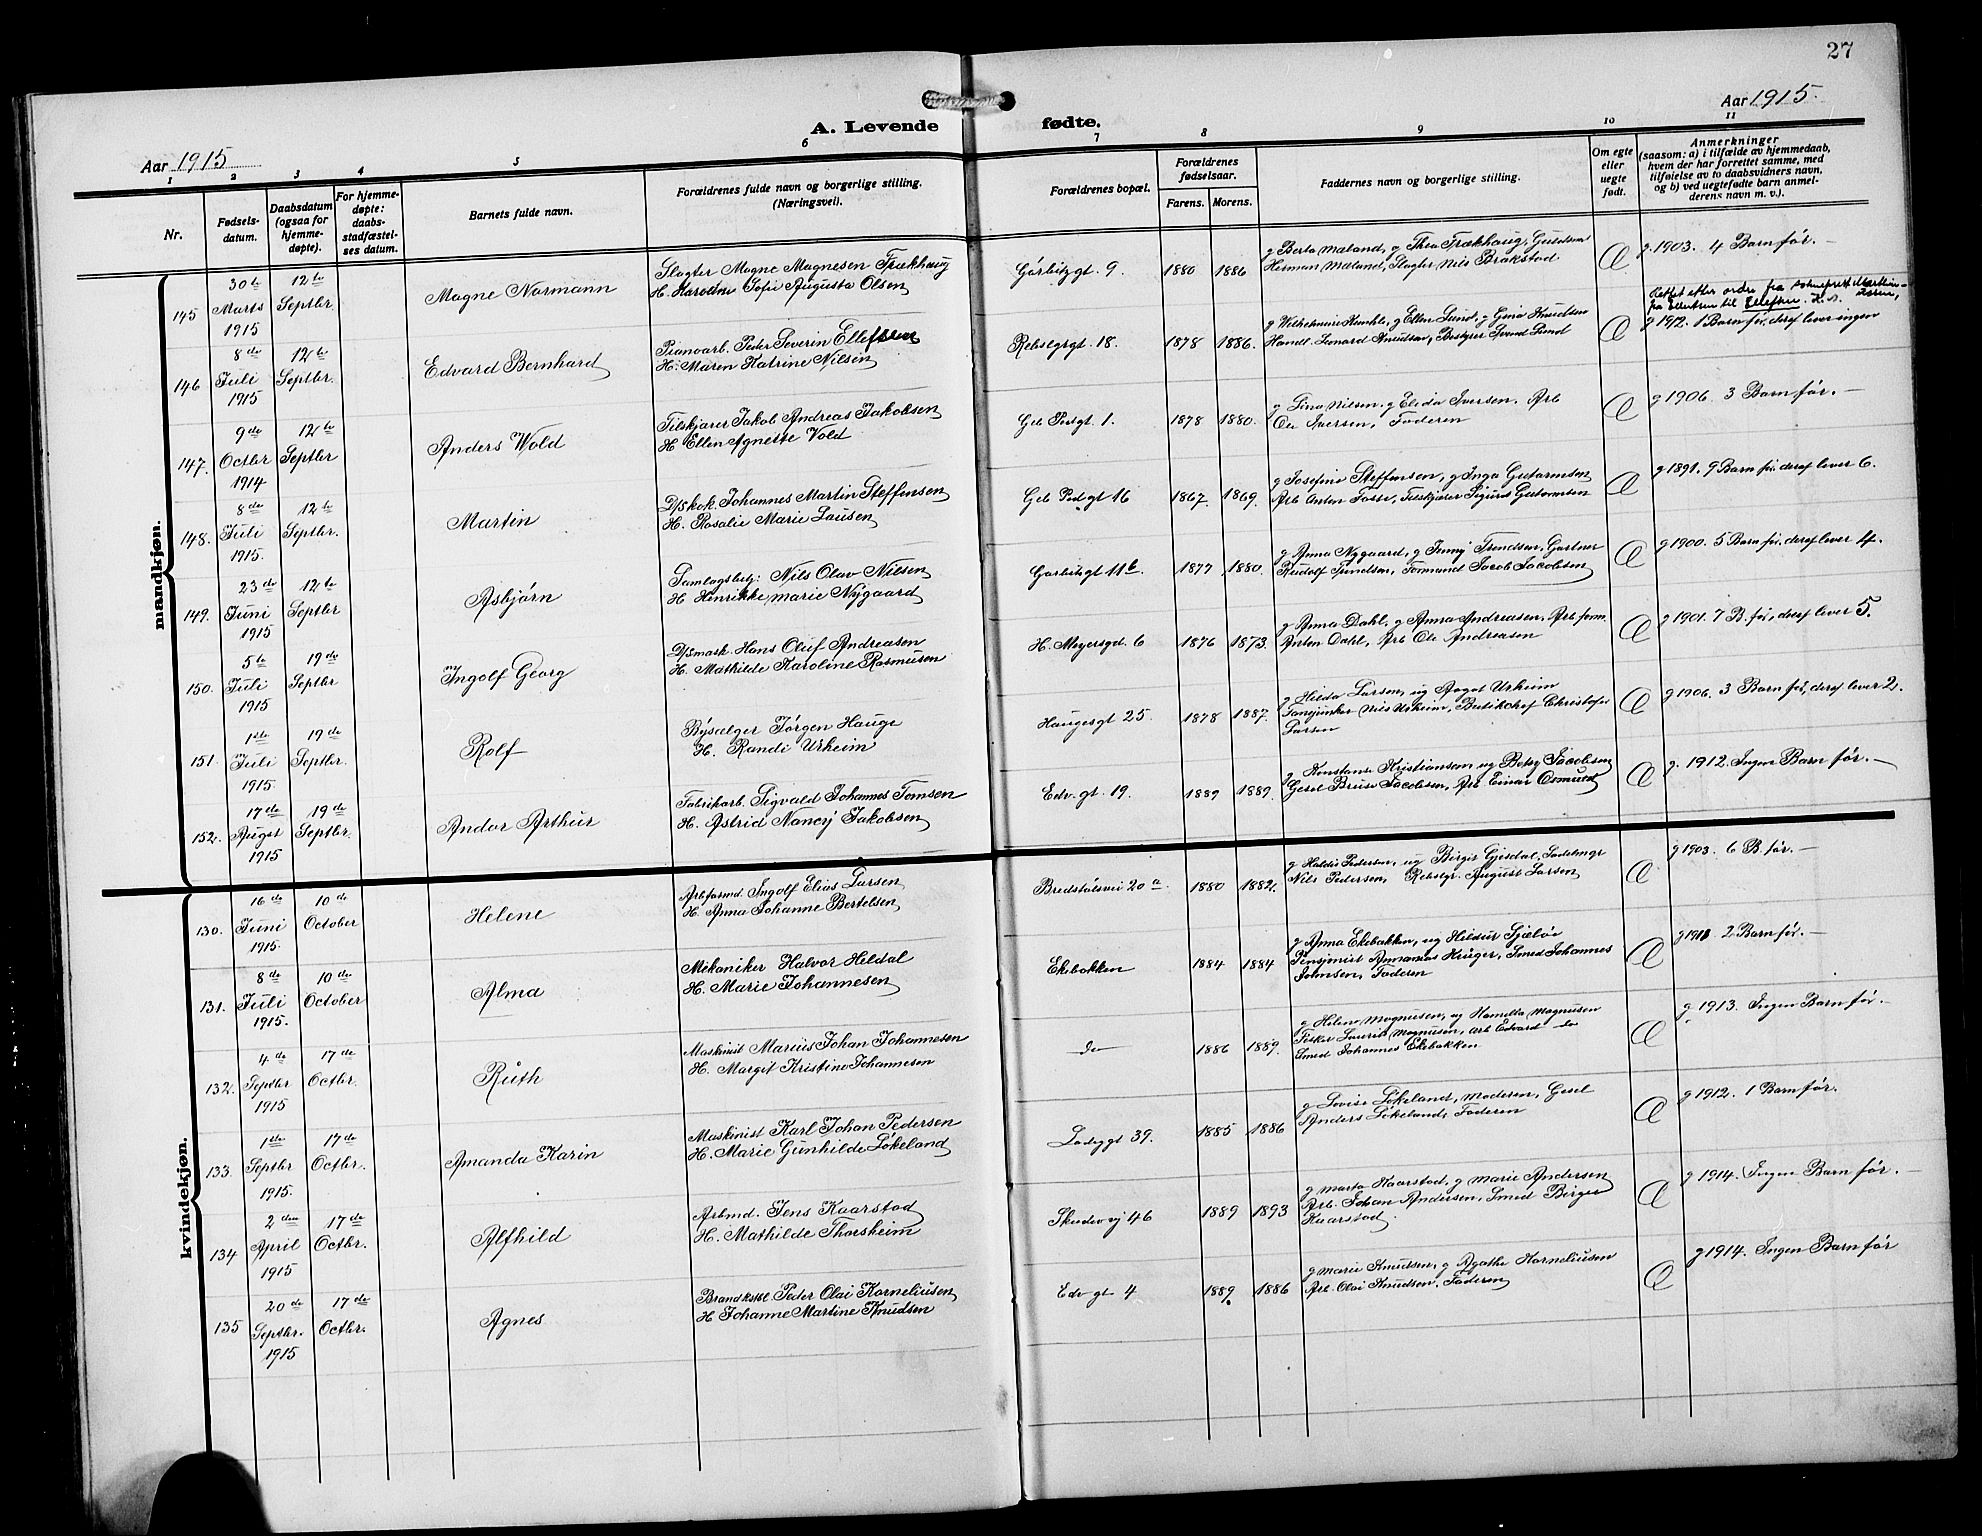 27
Aar 1915.
A. Levende fødte.
Aar 1915
1 2 3 4 5 6 7 8 9 10 11
Nr.
Fødsels-
datum.
Daabsdatum
(ogsaa for
hjemme-
døpte).
For hjemme-
døpte:
daabs-
stadfæstel-
ses datum.
Barnets fulde navn.
Forældrenes fulde navn og borgerlige stilling.
(Næringsvei).
Forældrenes bopæl.
Forældrenes
fødselsaar.
Farens. Morens.
Faddernes navn og borgerlige stilling.
Om egte
eller
uegte
født.
Anmerkninger
(saasom: a) i tilfælde av hjemmedaab,
hvem der har forrettet samme, med
tilføielse av to daabsvidners navn,
og b) ved uegtefødte barn anmel-
derens navn m. v.).
mandkjøn.
145
30te
Marts
1915
12te
Septbr.
Magne Normann
Slagter Magne Magnesen Trækhaug
H. Karoline Sofie Augusta Olsen
Gørbitzgt. 9.
1880 1886
g Berta Mæland, g Thea Trækhaug, Guldsm
Herman Mæland, Slagter Nils Brakstad
g. 1903. 4 Barn før. —
146
8de
Juli
1915
12te
Septbr.
Edvard Bernhard
Pianoarb. Peder Severin Ellefsen
H. Maren Katrine Nilsen
Rebslgrgt. 18.
1878 1886.
g Wilhelmine Humble, g Ellen Lund, g Gina Knudsen
Handl. Leonard Knudsen, Bestyrer Svend Lund
Rettet efter ordre fra
fra Ellertsen til Ellefsen.
g 1912. 1 Barn før, deraf lever ingen
147.
9de
Octbr
1914
12te
Septbr
Anders Wold
Fiskjører Jakob Andreas Jakobsen
H Ellen Agnette Vold
Geb Pedgt. 1.
1878 1880.
g Lina Nilsen, g Elida Iversen, Arb
Ole Iversen, Faderen
g 1906. 3 Barn før. —
148.
8de
Juli
1915.
12te
Septbr.
Martin
D/Skok. Johannes Martin Steffensen
H. Rosalie Marie Lausen
Geb Pedgt 16
1867. 1869.
g Josefine Steffensen, g Inga Gutormsen
Arb Anton Fosse, Fiskjører Sigurd Gutormsen
g 1891. 9 Barn før, deraf lever 6.
149.
23de
Juni
1915
12te
Septbr
Asbjørn
Samlagsbetj: Nils Olav Nilsen
H Henrikke Marie Nygaard
Gørbitzgt 11b.
1877 1880.
g Anna Nygaard, g Jenny Trondsen, Gartner
Rudolf Tundsen, Formand Jacob Jacobsen
g 1900. 5 Barn før, deraf lever 4.
150.
5te
Juli
1915
19de
Septbr
Ingolf Georg
D/Smask. Hans Oluf Andreasen
H. Mathilde Karoline Rasmusen
H. Meyersgd. 6
1876 1873.
g Anna Dahl, g Anna Andreasen, Arb form.
Anton Dahl, Arb Ole Andreasen
g 1901. 7 B. før, deraf lever 5.
151.
1ste
Juli
1915.
19de
Septbr.
Rolf
Bysælger Jørgen Hauge
H. Randi Urheim
Haugesgt 25.
1878 1887.
g Hilda Larsen, ug Aagot Urheim
Nils Urheim, Butikchef Christofer
Larsen
g 1906. 3 Barn før, deraf lever 2.
152.
17de
August
1915
19de
Septbr.
Andor Arthur
Fabrikarb. Sigvald Johannes Tomsen
H. Astrid Nancy Jakobsen
Edv. gt. 19.
1889 1889.
g Konstanse Kristiansen ug Betsy Jacobsen
Gesel Bruse Jacobsen, Arb Einar Osmund
g. 1912. Ingen Barn før. —
kvindekjøn.
130.
16de
Juni
1915.
10de
October
Helene
Arbformd. Ingolf Elias Larsen
H. Anna Johanne Bertelsen
Bredstølsvei 20a.
1880 1882.
g Haldis Pedersen, ug Birgit Gjesdal, Sadelmgr
Nils Pedersen, Rebslgr. August Larsen
g 1903. 6 B. før. —
131.
8de
Juli
1915.
10de
October
Alma
Mekaniker Halvor Heldal
H. Marie Johannesen
Ekebakken
1884 1884
g Anna Ekebakken, ug Hildur Sjæløe
Pensjonist Ananias Krüger, Smed Johannes
Johnsen, Faderen
2 Barn før. —
132.
4de
Septbr
1915
17de
Octbr.
Ruth
Maskinist Marius Johan Johannesen
H. Margit Kristine Johannesen
do
1886 1889.
g Helene Magnusen, ug Kamilla Magnusen
Fisker Laurits Magnusen, arb Edvard do
Smed Johannes Ekebakken
g 1913. Ingen Barn før. —
133.
1ste
Septbr
1915.
17de
Octbr.
Amanda Karin
Maskinist Karl Johan Pedersen
H. Marie Gunhilde Løkeland
Ladeggt 39.
1885 1886
g Lovise Løkeland, Moderen, Gesel
Anders Løkeland, Faderen
g 1912. 1 Barn før.
134
2den
April
1915
17de
Octbr.
Alfhild
Arbmd. Jens Kaarstad
H. Mathilde Thorsheim
Skudevvj 46
1889 1893
g Marta Kaarstad, g Marie Andersen
Arb. Johan Andersen, Smed Birger
Kaarstad
g 1914. Ingen Barn før. —
135
20de
Septbr.
1915
17de
Octbr.
Agnes
Brandkstbl. Peder Olai Korneliusen
H Johanne Martine Knudsen
Edv gt 4
1889 1886
g Marie Knudsen, g Agathe Korneliusen
Arb. Olai Knudsen, Faderen
g 1914. Ingen Barn før